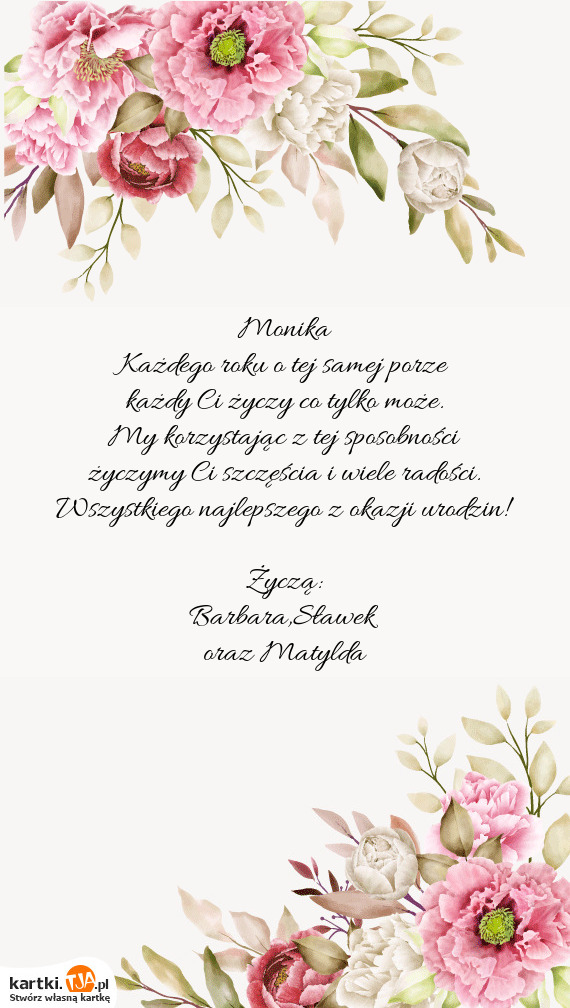 Monika
Każdego roku o tej samej porze
każdy Ci życzy co tylko może.
My korzystając z tej sposobności
życzymy Ci szczęścia i wiele radości.
Wszystkiego najlepszego z okazji urodzin!
Życzą:
Barbara,Sławek
oraz Matylda
kartki.TJA.pl
Stwórz własną kartkę